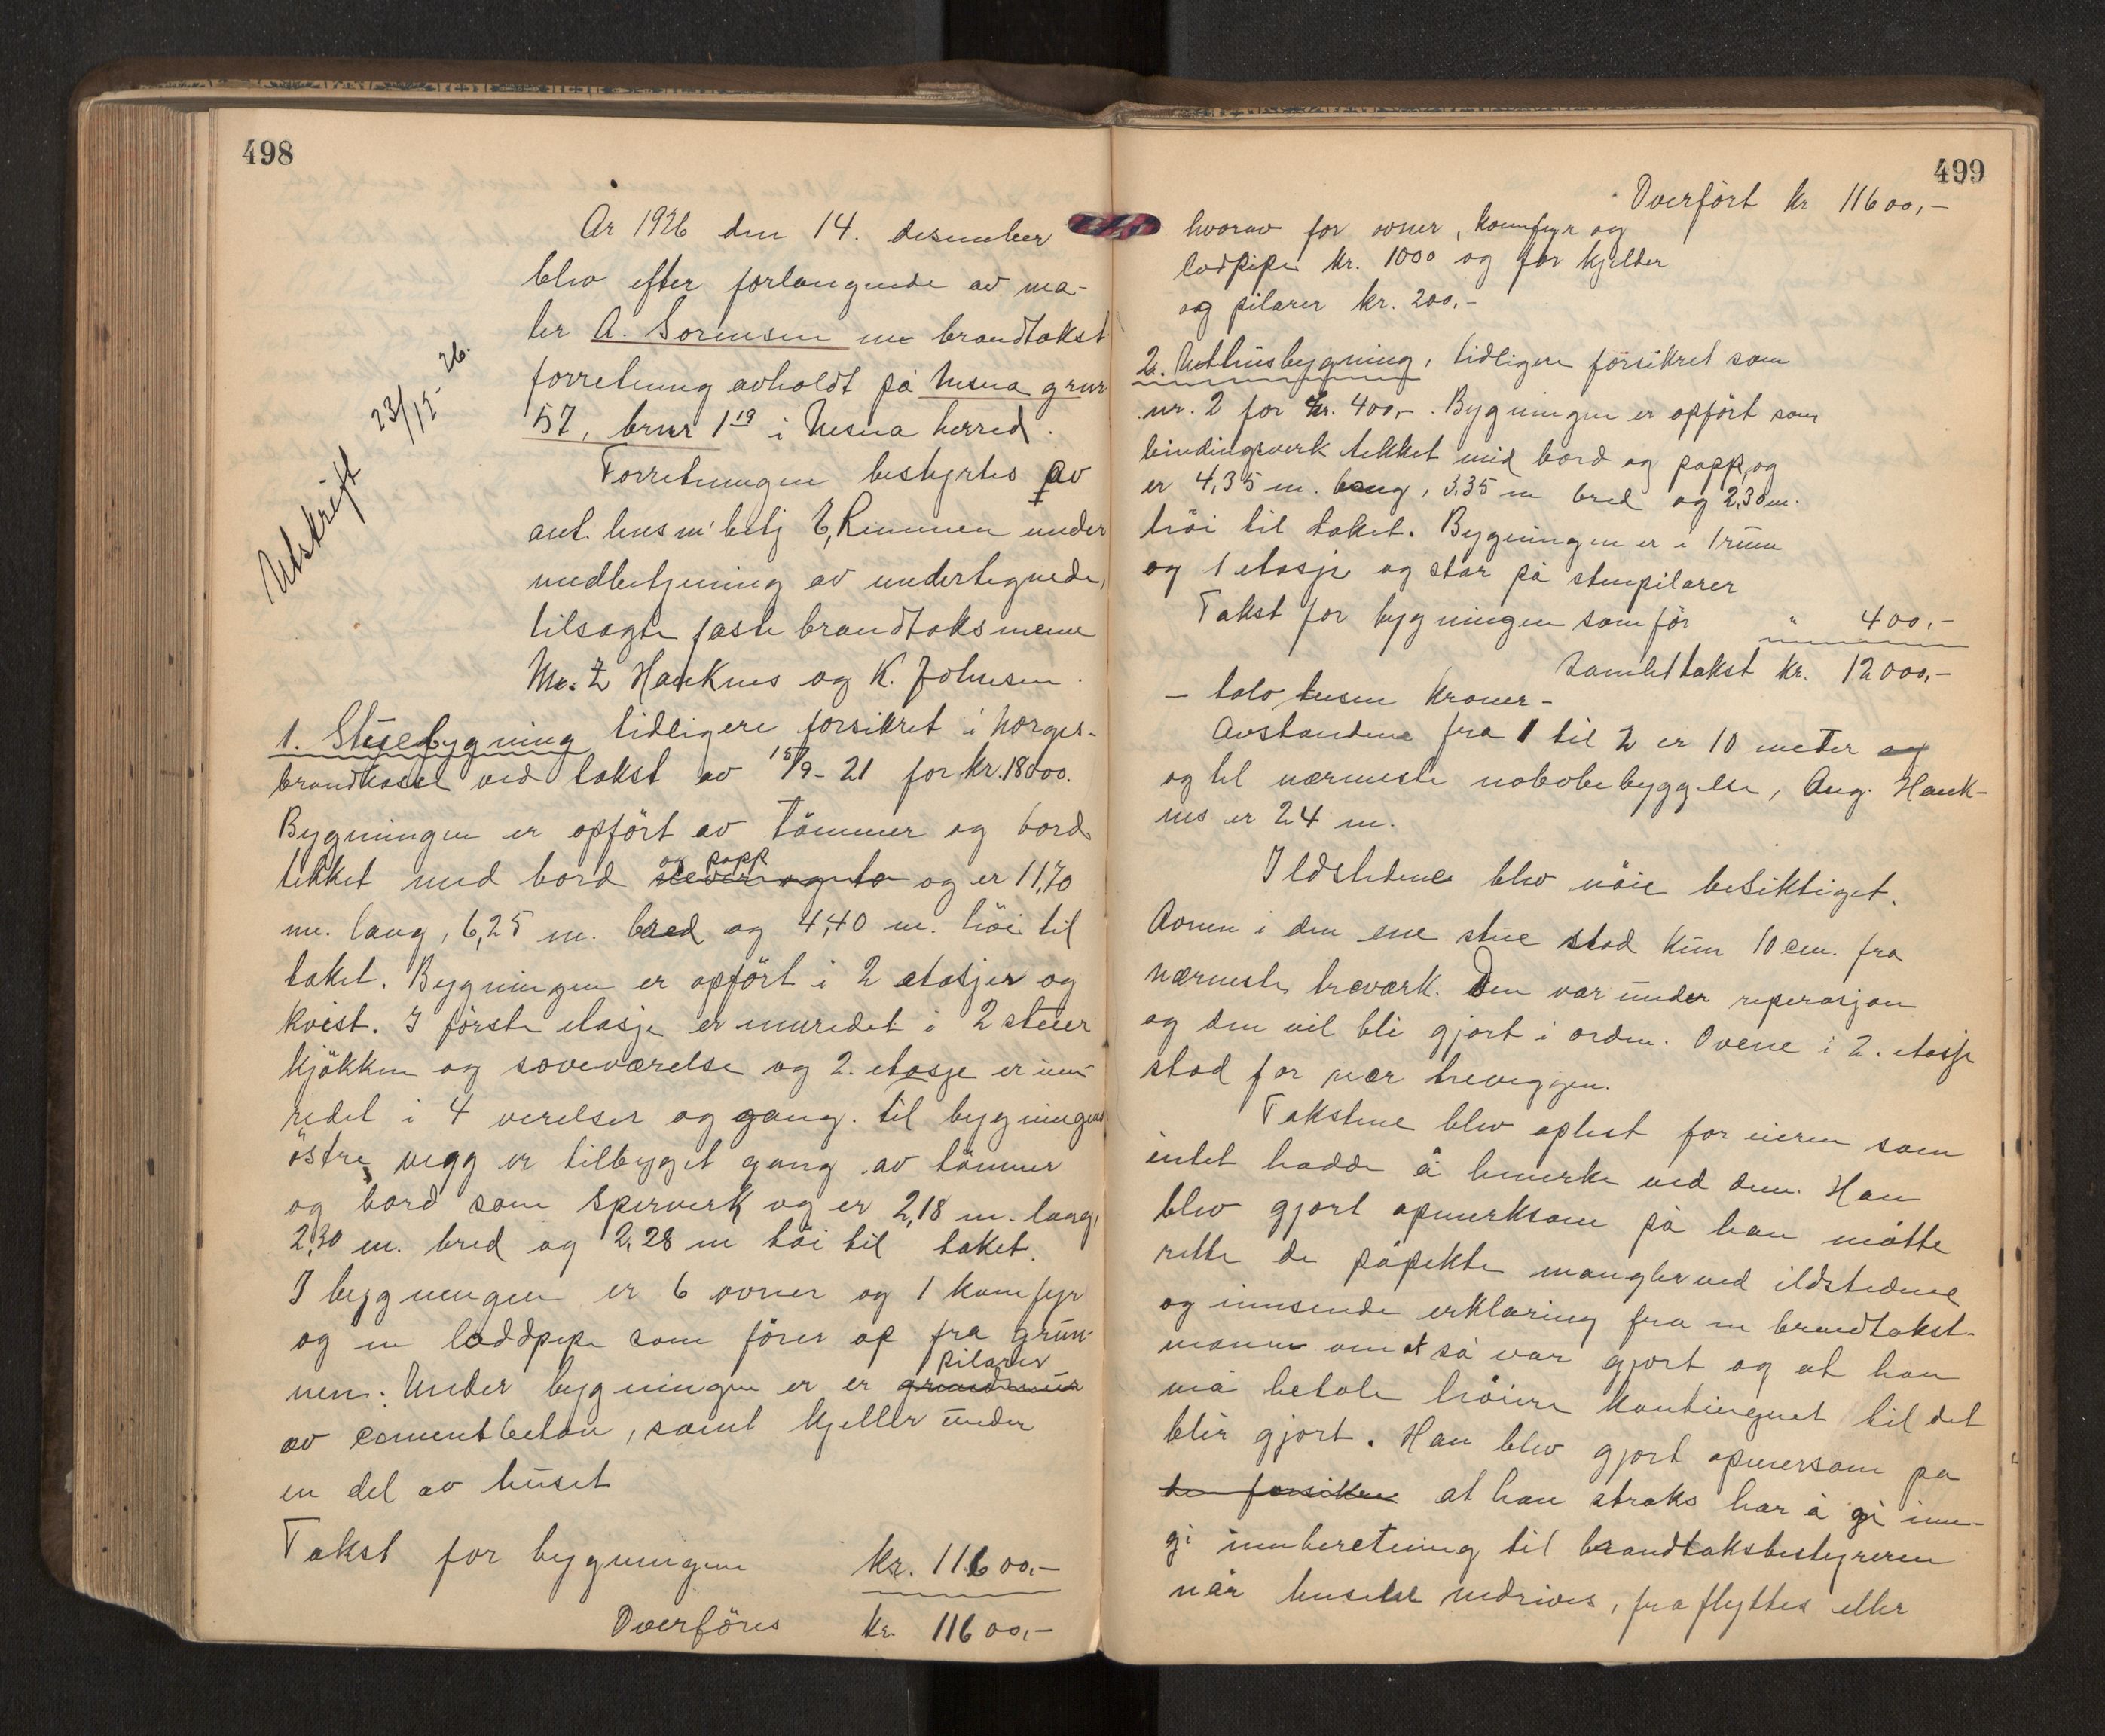 498
År 1926 den 14. desember
blev efter forlangende av ma-
ler A. Sørensen en brandtakst
forretning avholdt på Nesna grnr
57, brnr 1 19 i Nesna herred.
Utskrift 23/12-26.
Forretningen bestyrtes av
ant. lensm' betj E, Remmen under
medbetjening av undertegnede,
tilsagte faste brandtaksmenn
M. Z Hauknes og K. Johnsen.
1. Stuebygning tidligere forsikret i Norges-
brandkasse ved takst av 15/9-21 for kr. 18000.
Bygningen er opført av tömmer og bord
tekket med bord og papp og er 11,70
m. lang, 6,25 m. bred og 4,40 m. höi til
taket. Bygningen er opfört i 2 etasjer og
kvist. I förste etasje er innredet i 2 stuer
kjökken og soveværelse og 2. etasje er inn-
redet i 4 verelser og gang. til bygningens
östre vegg er tilbyget gang av tömmer
og bord som sperverk og er 2,18 m. lang,
2,30 m. bred og 2,28 m höi til taket.
I bygningen er 6 ovner og 1 komfyr
og en loddpipe som förer op fra grun-
nen. Under bygningen er er grundmur pilarer
av cementbeton, samt kjeller under
en del av huset
Takst for bygningen kr. 11600,-
Overföres kr 11600,-
499
Overfört kr 11600,-
hvorav for ovner, komfyr og
lodpipe kr. 1000 og for kjelder
og pilarer kr. 200,-
2. Uthusbygning, tidligere försikret som
nr. 2 for kr. 400,-. Bygningen er opfört som
bindingsverk tekket med bord og papp, og
er 4,35 m. lang, 3,35 m bred og 2,30 m.
höi til taket. Bygningen er i 1 rum
og 1 etasje og står på stenpilarer
Takst for bygningen som för " 400,-
Samlet takst kr. 12000,-
- tolv tusen kroner -
Avstandene fra 1 til 2 er 10 meter og
og til nærmeste nabobebyggelse, Aug. Hauk-
nes er 24 m.
Ildstedene blev nöie besiktiget.
Avnen i den ene stue stod kun 10 cm. fra
nærmeste treværk. Den var under reperasjon
og den vil bli gjort i orden. Ovene i 2. etasje
stod for nær treveggen.
Takstene blev oplest for eieren som
intet hadde å bemerke ved dem. Han
blev gjort opmerksom på han måtte
rette de påpekte mangler ved ildstedene
og innsende erklæring fra en brandtakst-
mann om at så var gjort og at han
må betale höiere kontingent til det
blir gjort. Han blev gjort opmersom på
de forsikre at han straks har å gi inn-
gi innberetning til brandtaksbestyreren
når husene nedrives, fraflyttes eller